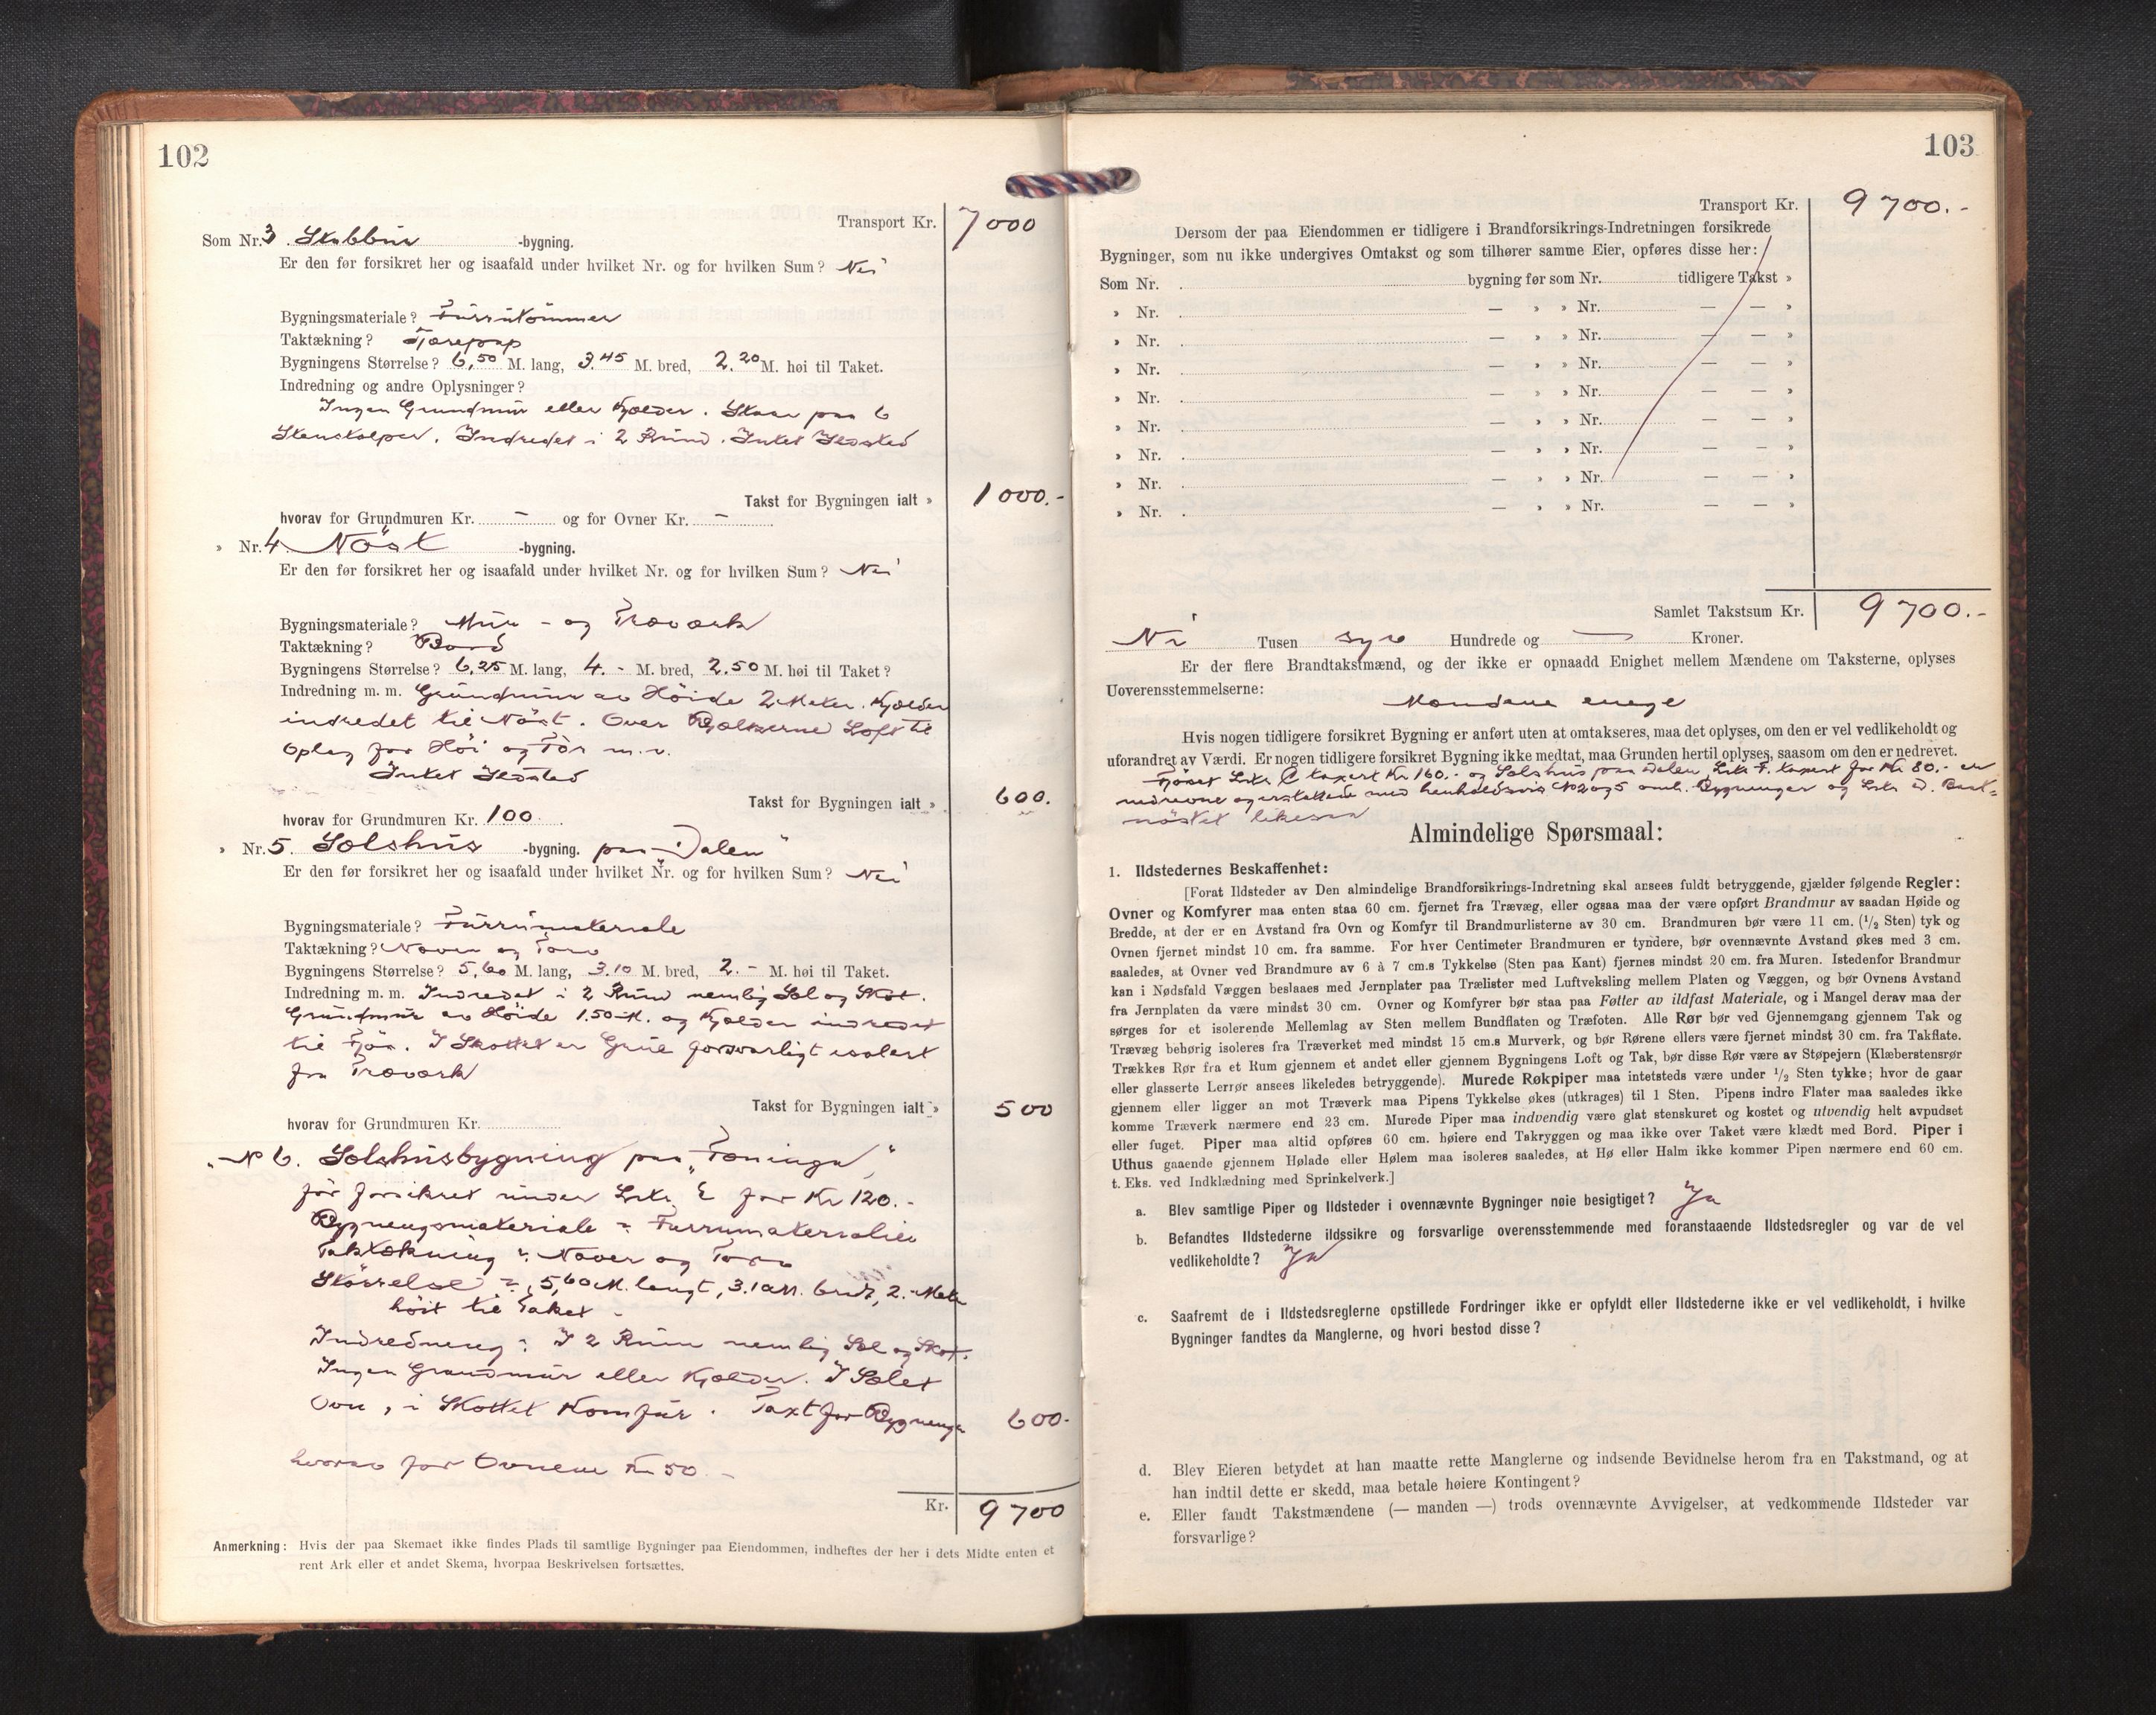 102
Transport Kr. 7000
Som Nr. 3. Stabbur -bygning.
Er den før forsikret her og isaafald under hvilket Nr. og for hvilken Sum? Nei
Bygningsmateriale? Furrutømmer
Taktækning? Tjærepap
Bygningens Størrelse? 6,50 M. lang, 3.45 M. bred, 2.20 M. høi til Taket.
Indredning og andre Oplysninger?
Ingen Grundmur eller Kjælder. Staar paa 6
Stenstolper. Indredet i 2 Rum. Intet Ildsted
Takst for Bygningen ialt » 1000.-
hvorav for Grundmuren Kr. - og for Ovner Kr. -
» Nr. 4. Nöst -bygning.
Er den før forsikret her og isaafald under hvilket Nr. og for hvilken Sum? Nei
Bygningsmateriale? Mur - og Træværk
Taktækning? Bord
Bygningens Størrelse? 6.25 M. lang, 4.- M. bred, 2.50 M. høi til Taket?
Indredning m. m. Grundmur av Höide 2 Meter. Kjælder
indredet til Nöst. Over Bjælkerne Loft til
Oplag for Höi og Fòr m.v.
Intet Ildsted
Takst for Bygningen ialt » 600.
hvorav for Grundmuren Kr. 100
» Nr. 5. Sælshus -bygning. paa "Dalen"
Er den før forsikret her og isaafald under hvilket Nr. og for hvilken Sum? Nei
Bygningsmateriale? Furrumateriale
Taktækning? Næver og Torv
Bygningens Størrelse? 5,60 M. lang, 3.10 M. bred, 2.- M. høi til Taket.
Indredning m. m. Indredet i 2 Rum nemlig Sæl og Skot.
Grundmur av Höide 1.50 M. og Kjælder indredet
til Fjös. I Skottet er Grue forsvarligt isolert
fra Træværk
Takst for Bygningen ialt » 500
hvorav for Grundmuren Kr.
" No 6. Sælshusbygning paa "Tæninga",
för forsikret under Litr. E for Kr 120.-
Bygningsmateriale = Furrumaterialier
Taktækning: Næver og Torv
Störrelse = 5,60 M. langt, 3.10 M. bredt, 2.- Meter
höit til Taket -
Indredning: I 2 Rum nemlig Sæl og Skot.
Ingen Grundmur eller Kjælder. I Sælet
Ovn, i Skottet Komfur. Taxt for Bygningen 600.-
hvorav for Ovnene Kr 50.-
Kr. 9700
Anmerkning: Hvis der paa Skemaet ikke findes Plads til samtlige Bygninger paa Eiendommen, indheftes der her i dets Midte enten et
rent Ark eller et andet Skema, hvorpaa Beskrivelsen fortsættes.
103
Transport Kr. 9700.-
Dersom der paa Eiendommen er tidligere i Brandforsikrings-Indretningen forsikrede
Bygninger, som nu ikke undergives Omtakst og som tilhører samme Eier, opføres disse her:
Som Nr. bygning før som Nr. tidligere Takst »
» Nr. — » » Nr. — — »
» Nr. — » » Nr. — — »
» Nr. — » » Nr. — — »
» Nr. — » » Nr. — — »
» Nr. — » » Nr. — — »
» Nr. — » » Nr. — — »
» Nr. — » » Nr. — — »
» Nr. — » » Nr. — — »
Samlet Takstsum Kr. 9700.-
Ni Tusen syv Hundrede og — Kroner.
Er der flere Brandtakstmænd, og der ikke er opnaadd Enighet mellem Mændene om Taksterne, oplyses
Uoverensstemmelserne:
Mændene enige
Hvis nogen tidligere forsikret Bygning er anført uten at omtakseres, maa det oplyses, om den er vel vedlikeholdt og
uforandret av Værdi. Er nogen tidligere forsikret Bygning ikke medtat, maa Grunden hertil oplyses, saasom om den er nedrevet.
Fjöset Litr. C taxert Kr 160.- og Sælshus paa Dalen Litr. F. taxert for Kr 80.- er
nedrevne og erstattede med henholdsvis No 2 og 5 omh. Bygninger og Litr. D. Baat=
nöstet likesaa
Almindelige Spørsmaal:
1. Ildstedernes Beskaffenhet:
[Forat Ildsteder av Den almindelige Brandforsikrings-Indretning skal ansees fuldt betryggende, gjælder følgende Regler:
Ovner og Komfyrer maa enten staa 60 cm. fjernet fra Trævæg, eller ogsaa maa der være opført Brandmur av saadan Høide og
Bredde, at der er en Avstand fra Ovn og Komfyr til Brandmurlisterne av 30 cm. Brandmuren bør være 11 cm. (1/2 Sten) tyk og
Ovnen fjernet mindst 10 cm. fra samme. For hver Centimeter Brandmuren er tyndere, bør ovennævnte Avstand økes med 3 cm.
saaledes, at Ovner ved Brandmure av 6 à 7 cm.s Tykkelse (Sten paa Kant) fjernes mindst 20 cm. fra Muren. Istedenfor Brandmur
kan i Nødsfald Væggen beslaaes med Jernplater paa Trælister med Luftveksling mellem Platen og Væggen, og bør Ovnens Avstand
fra Jernplaten da være mindst 30 cm. Ovner og Komfyrer bør staa paa Føtter av ildfast Materiale, og i Mangel derav maa der
sørges for et isolerende Mellemlag av Sten mellem Bundflaten og Træfoten. Alle Rør bør ved Gjennemgang gjennem Tak og
Trævæg behørig isoleres fra Træverket med mindst 15 cm.s Murverk, og bør Rørene ellers være fjernet mindst 30 cm. fra Takflate.
Trækkes Rør fra et Rum gjennem et andet eller gjennem Bygningens Loft og Tak, bør disse Rør være av Støpejern (Klæberstensrør
eller glasserte Lerrør ansees likeledes betryggende). Murede Røkpiper maa intetsteds være under 1/2 Sten tykke; hvor de gaar
gjennem eller ligger an mot Træverk maa Pipens Tykkelse økes (utkrages) til 1 Sten. Pipens indre Flater maa saaledes ikke
komme Træverk nærmere end 23 cm. Murede Piper maa indvendig være glat stenskuret og kostet og utvendig helt avpudset
eller fuget. Piper maa altid opføres 60 cm. høiere end Takryggen og maa ikke over Taket være klædt med Bord. Piper i
Uthus gaaende gjennem Hølade eller Hølem maa isoleres saaledes, at Hø eller Halm ikke kommer Pipen nærmere end 60 cm.
t. Eks. ved Indklædning med Sprinkelverk.]
a. Blev samtlige Piper og Ildsteder i ovennævnte Bygninger nøie besigtiget? Ja
b. Befandtes Ildstederne ildssikre og forsvarlige overensstemmende med foranstaaende Ildstedsregler og var de vel
vedlikeholdte? Ja
c. Saafremt de i Ildstedsreglerne opstillede Fordringer ikke er opfyldt eller Ildstederne ikke er vel vedlikeholdt, i hvilke
Bygninger fandtes da Manglerne, og hvori bestod disse?
d. Blev Eieren betydet at han maatte rette Manglerne og indsende Bevidnelse herom fra en Takstmand, og at
han indtil dette er skedd, maa betale høiere Kontingent?
e. Eller fandt Takstmændene (— manden —) trods ovennævnte Avvigelser, at vedkommende Ildsteder var
forsvarlige?